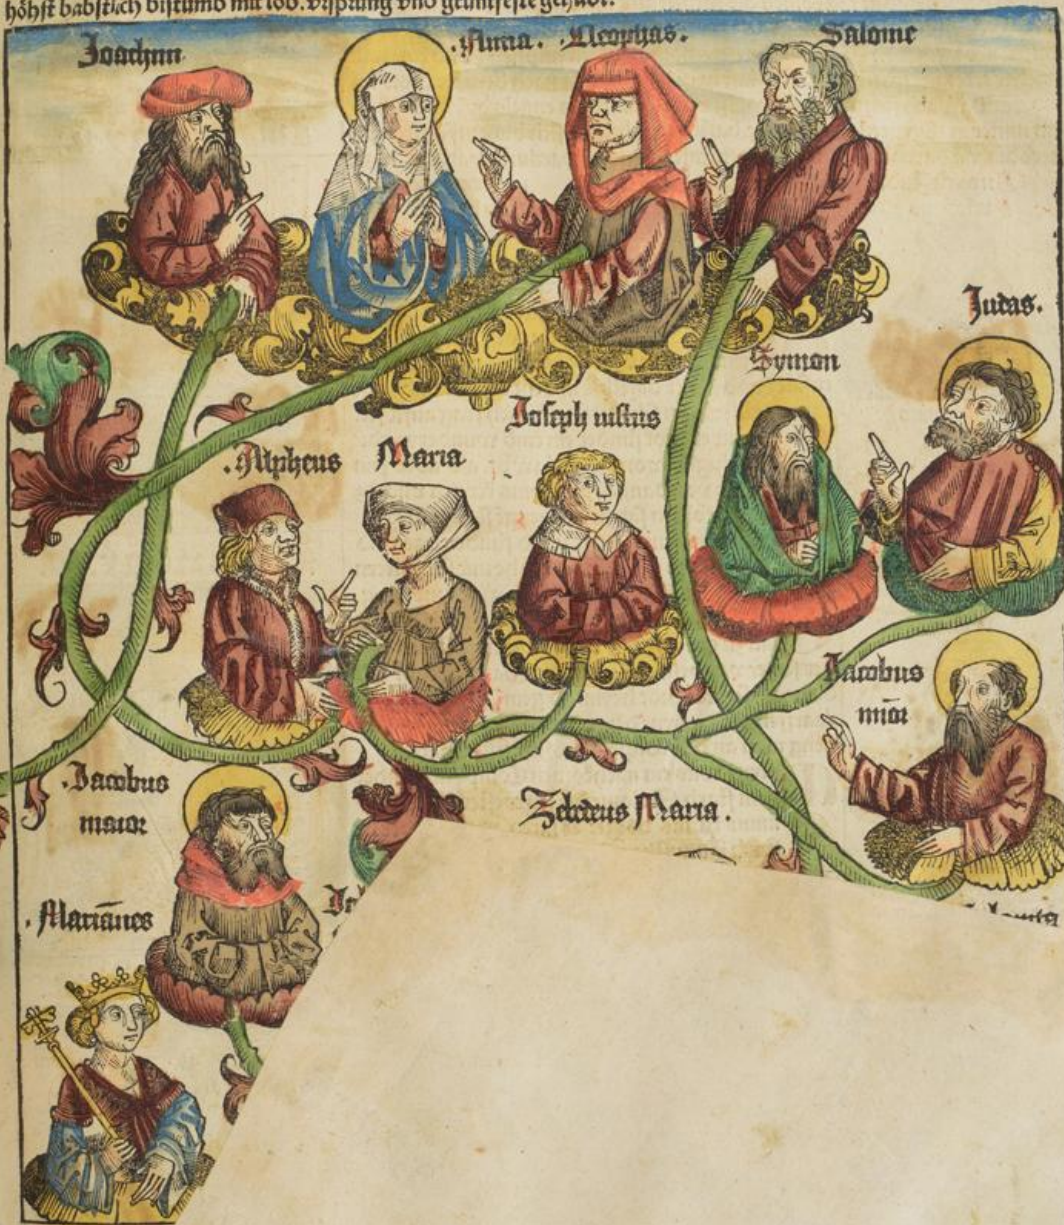 höhst babstlich bistumb mit lob. vrsprung vnd gruntfeste gehabt.
Joachim
.Anna. .Cleophas.
Salome
Judas.
Symon
Joseph iustus
.Alpheus
Maria
Jacobus
mior
.Jacobus
maior
Zebedeus Maria.
.Mariānes